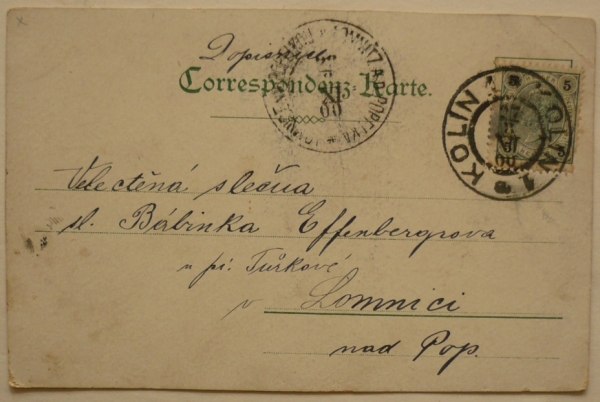 Dopisnice
Correspondenz-Karte.
KOLIN
KOLIN
5
Velectěná slečna
sl. Bábinka Effenbergrova
u pí. Tůrkové
v Lomnici
nad Pop.